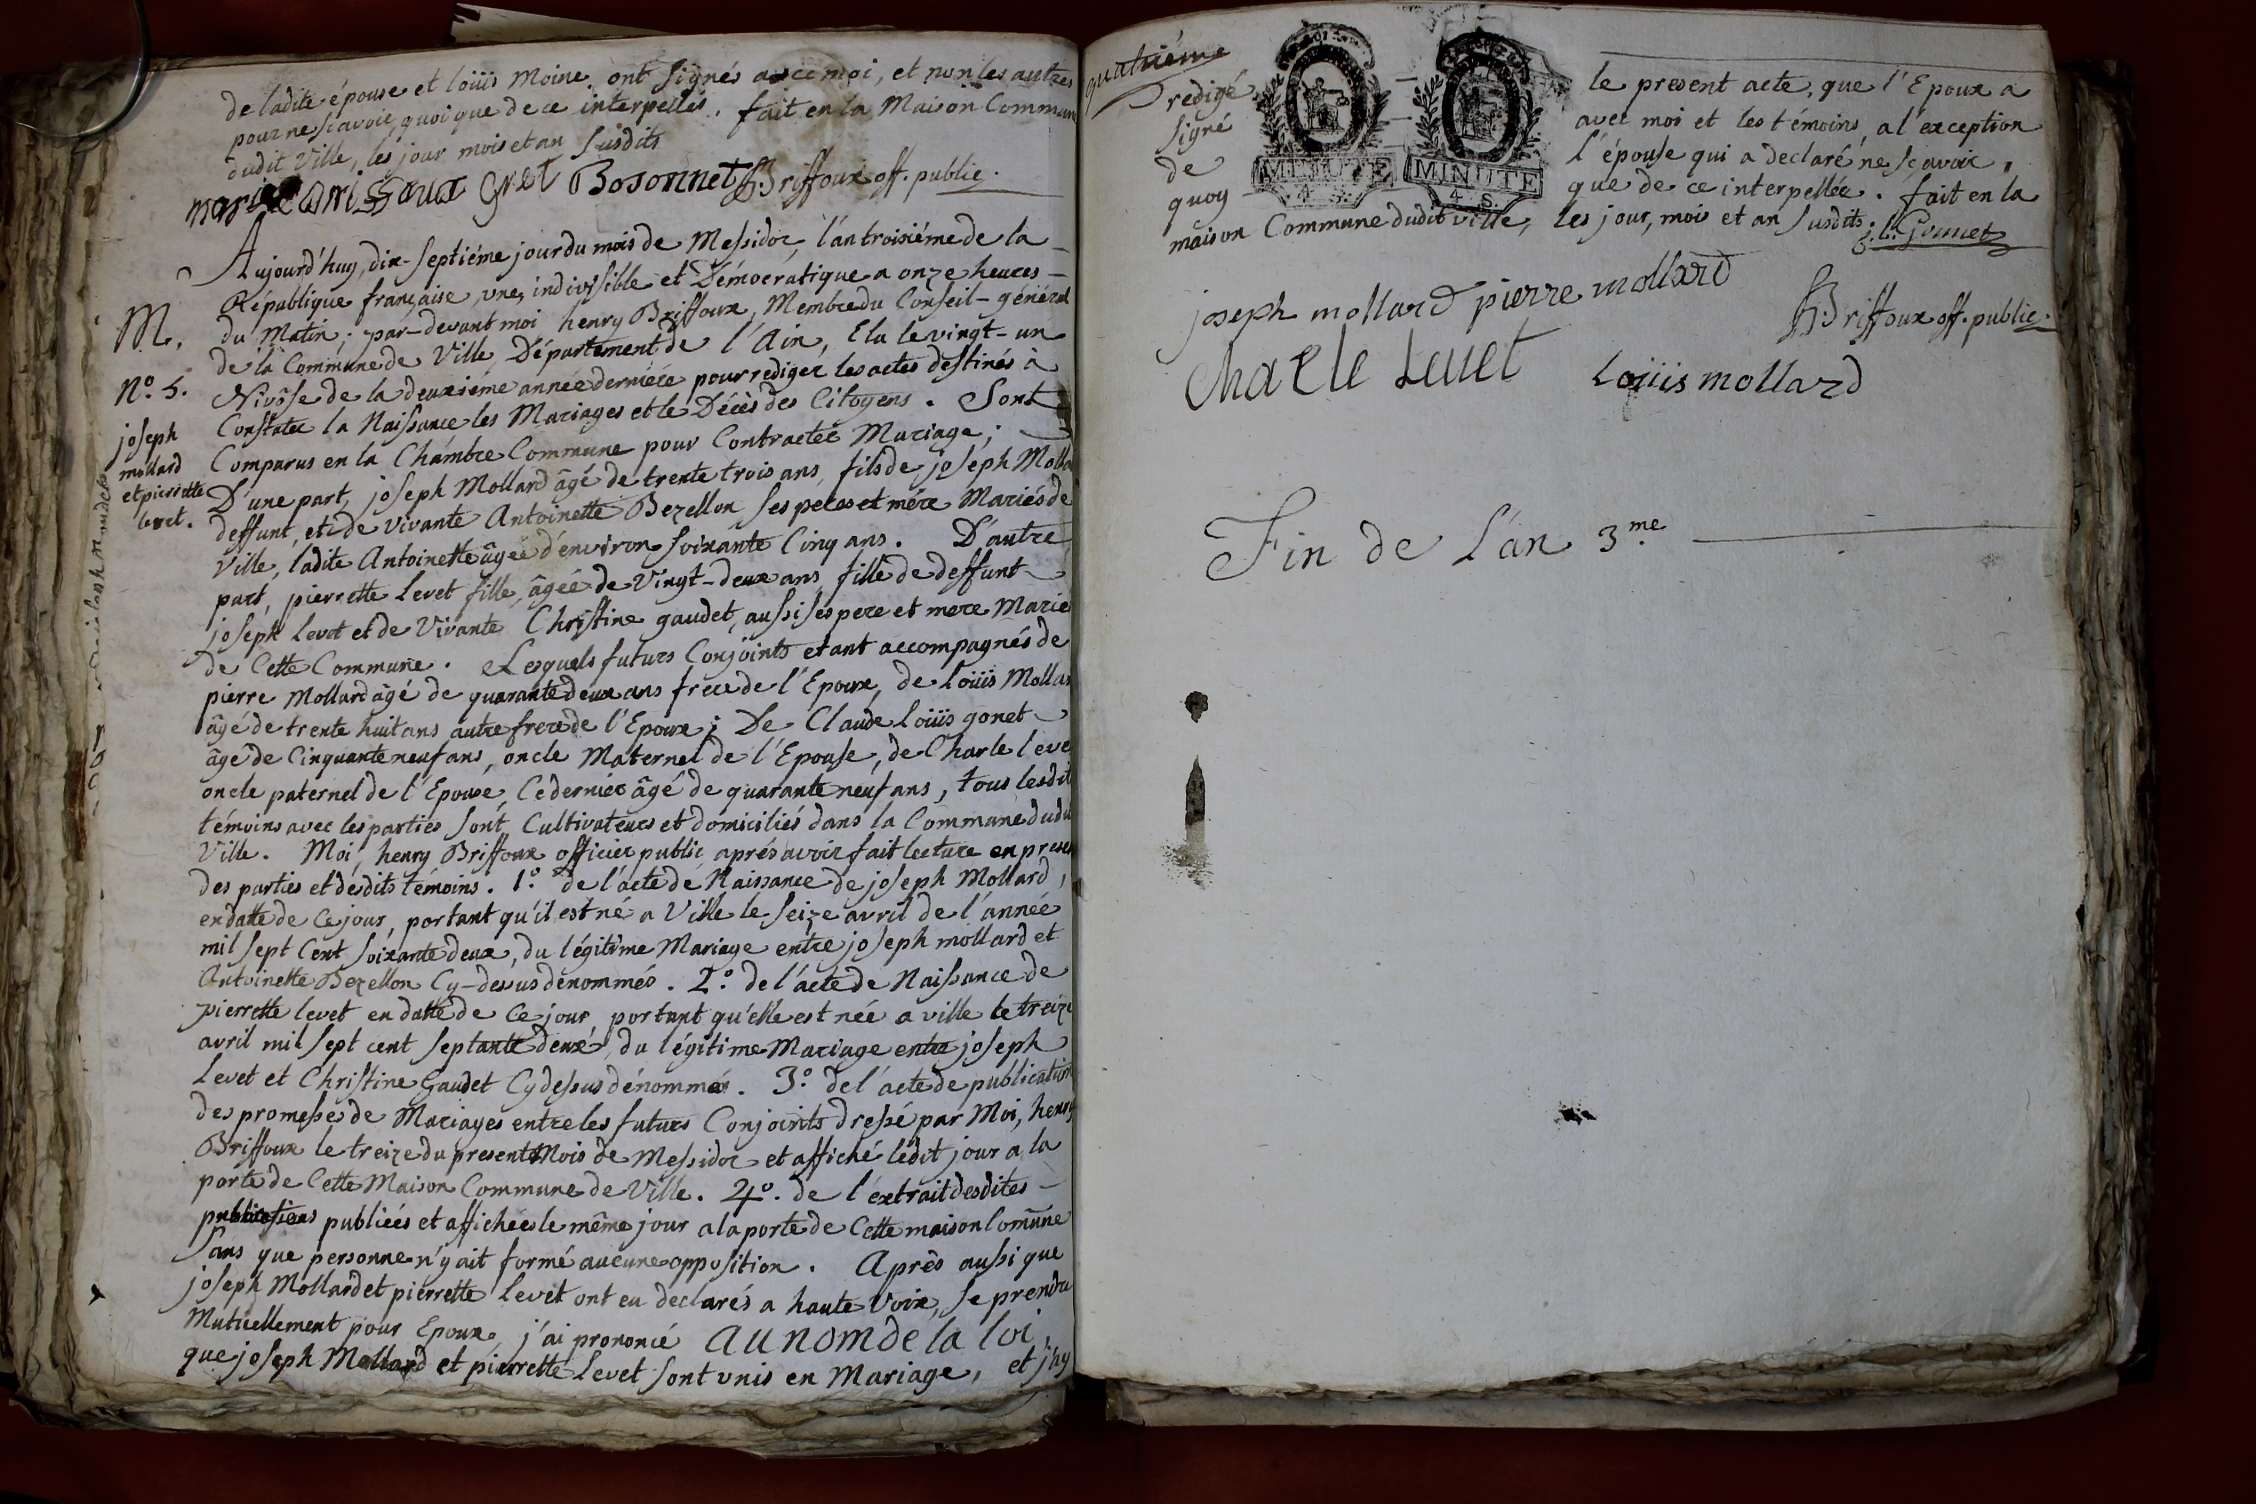 de ladite épouse et loüis Moine, ont signés avec moi, et non les autres
pour ne scavoir, quoique de ce interpellés. fait en la Maison Commun
dudit Ville, les jour mois et an susdits
gret Bosonnet h. Briffoux off. public.
Aujourd'huy, dix-septiéme jour du mois de Messidor, l'an troisiéme de la
République française une, indivisible et Démocratique a onze heures
M.
du Matin; par-devant moi henry Briffoux, Membre du Conseil-général
de la Commune de Ville, Département de l'Ain, Elu le vingt-un
N.º 5.
Nivôse de la deuxiéme année derniére pour rediger les actes destinés à
Constater la Naissance les Mariages et le Décès des Citoyens. Sont
joseph
mollard
et pierrette
levet.
Comparus en la Chámbre Commune pour Contracter Mariage;
D'une part, joseph Mollard âgé de trente trois ans, fils de joseph Molla
deffunt, et de vivante Antoinette Bezellon ses peres et mére Mariés de
Ville, ladite Antoinette âgée d'environ soixante Cinq ans. D'autre
part, pierrette Levet fille, âgée de Vingt-deux ans, fille de deffunt
joseph Levet et de Vivante Christine gaudet, aussi ses pere et mere Marie
de Cette Commune. Lesquels futurs Conjoints etant accompagnés de
pierre Mollard âgé de quarante deux ans frere de l'Epoux, de Loüis Mollar
âgé de trente huit ans autre frere de l'Epoux; De Claude loüis gonet
âgé de Cinquante neuf ans, oncle Maternel de l'Epouse, de Charle leve
oncle paternel de l'Epouse, Ce dernier âgé de quarante neuf ans, tous lesdit
témoins avec les parties sont Cultivateurs et domiciliés dans la Commune dudi
Ville. Moi, henry Briffoux officier public, aprés avoir fait lecture en prese
des parties et desdits témoins. 1.º de l'acte de Naissance de joseph Mollard,
en datte de Ce jour, portant qu'il est né a Ville le seize avril de l'année
mil sept Cent soixante deux, du légitime Mariage entre joseph mollard et
Antoinette Bezellon Cy-dessus dénommés. 2.º de l'acte de Naissance de
pierrette levet en datte de Ce jour portant qu'elle est née a ville le treize
avril mil sept cent septante deux, du légitime Mariage entre joseph
Levet et Christine Gaudet Cy dessus dénommés. 3.º de l'acte de publication
des promesses de Mariages entre les futurs Conjoints dressé par Moi, henry
Briffoux le treize du present Mois de Messidor et affiché ledit jour a la
porte de Cette Maison Commune de Ville. 4.º de l'extrait desdites
publications publiées et affichées le même jour a la porte de Cette maison Com̃une
Sans que personne n'y ait formé aucune opposition. Après aussi que
joseph Mollard et pierrette Levet ont eu declarés a haute Voix, se prendre
Mutuellement pour Epoux, j'ai prononcé au nom de la loi,
que joseph Mollard et pierrette Levet sont vnis en Mariage, et j'ay
quatriéme
redigé le present acte, que l'Epoux a
signé avec moi et les témoins, a l'exception
de l'épouse qui a declaré ne scavoir,
quoy que de ce interpellée. fait en la
MINUTE
4 S.
MINUTE
4 S.
maison Commune dudit ville, les jour, mois et an susdits.
joseph mollard pierre mollard
h. Briffoux off. public.
Charle Levet Loüis mollard
Fin de L'an 3.me